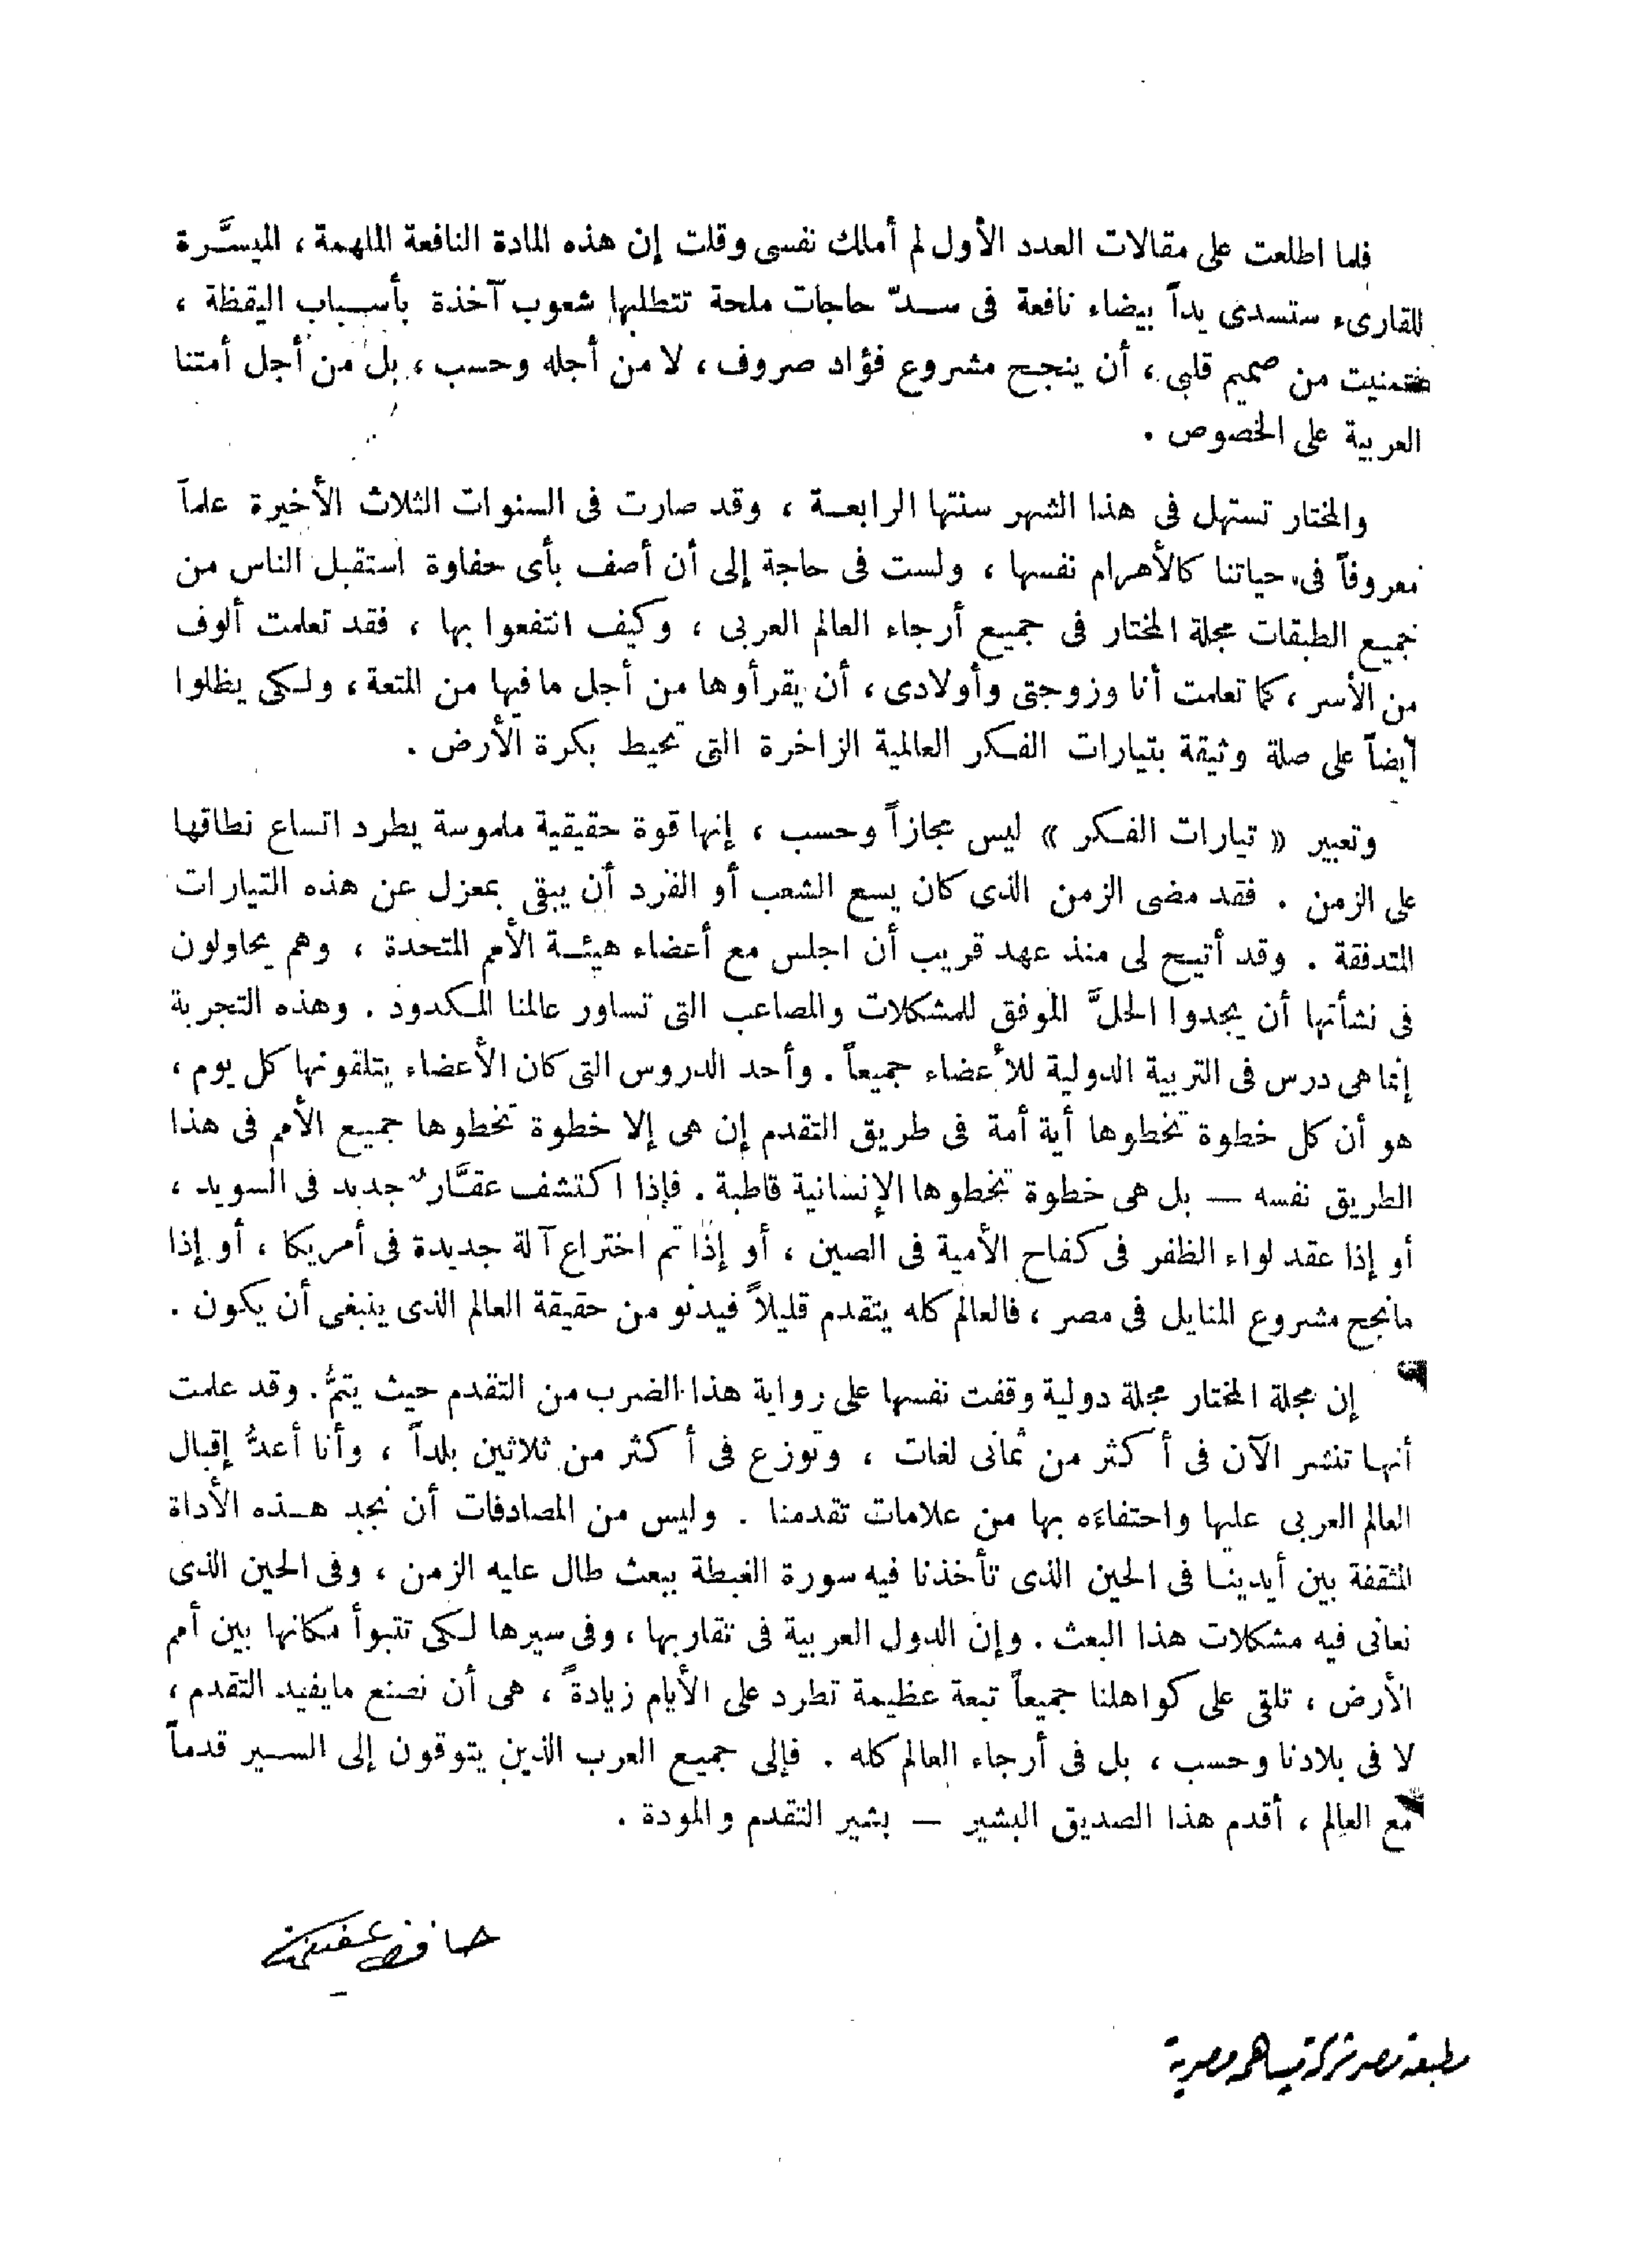 فلما اطلعت على مقالات العدد الأول لم أملك نفسى وقلت إن هذه المادة النافعة الملهمة ، الميسَّرة
للقارىء ستسدى يداً بيضاء نافعة فى سدّ حاجات ملحة تتطلبها شعوب آخذة بأسباب اليقظة ،
فتمنيت من صميم قلبى ، أن ينجح مشروع فؤاد صروف ، لا من أجله وحسب ، بل من أجل أمتنا
العربية على الخصوص .
والمختار تستهل فى هذا الشهر سنتها الرابعة ، وقد صارت فى السنوات الثلاث الأخيرة علماً
معروفاً فى حياتنا كالأهرام نفسها ، ولست فى حاجة إلى أن أصف بأى حفاوة استقبل الناس من
جميع الطبقات مجلة المختار فى جميع أرجاء العالم العربى ، وكيف انتفعوا بها ، فقد تعلمت ألوف
من الأسر ، كما تعلمت أنا وزوجتى وأولادى ، أن يقرأوها من أجل ما فيها من المتعة ، ولكى يظلوا
أيضاً على صلة وثيقة بتيارات الفكر العالمية الزاخرة التى تحيط بكرة الأرض .
وتعبير « تيارات الفكر » ليس مجازاً وحسب ، إنها قوة حقيقية ملموسة يطرد اتساع نطاقها
على الزمن . فقد مضى الزمن الذى كان يسع الشعب أو الفرد أن يبقى بمعزل عن هذه التيارات
المتدفقة . وقد أتيح لى منذ عهد قريب أن اجلس مع أعضاء هيئة الأمم المتحدة ، وهم يحاولون
فى نشأتها أن يجدوا الحلَّ الموفق للمشكلات والمصاعب التى تساور عالمنا المكدود . وهذه التجربة
إنما هى درس فى التربية الدولية للأعضاء جميعاً . وأحد الدروس التى كان الأعضاء يتلقونها كل يوم ،
هو أن كل خطوة تخطوها أية أمة فى طريق التقدم إن هى إلا خطوة تخطوها جميع الأمم فى هذا
الطريق نفسه — بل هى خطوة تخطوها الإنسانية قاطبة . فإذا اكتشف عقَّار جديد فى السويد ،
أو إذا عقد لواء الظفر فى كفاح الأمية فى الصين ، أو إذا تم اختراع آلة جديدة فى أمريكا ، أو إذا
مانجح مشروع المنايل فى مصر ، فالعالم كله يتقدم قليلاً فيدنو من حقيقة العالم الذى ينبغى أن يكون .
إن مجلة المختار مجلة دولية وقفت نفسها على رواية هذا الضرب من التقدم حيث يتمُّ . وقد علمت
أنها تنشر الآن فى أكثر من ثمانى لغات ، وتوزع فى أكثر من ثلاثين بلداً ، وأنا أعدُّ إقبال
العالم العربى عليها واحتفاءَه بها من علامات تقدمنا . وليس من المصادفات أن نجد هذه الأداة
المثقفة بين أيدينا فى الحين الذى تأخذنا فيه سورة الغبطة ببعث طال عليه الزمن ، وفى الحين الذى
نعانى فيه مشكلات هذا البعث . وإن الدول العربية فى تقاربها ، وفى سيرها لكى تتبوأ مكانها بين أمم
الأرض ، تلقى على كواهلنا جميعاً تبعة عظيمة تطرد على الأيام زيادةً ، هى أن نصنع مايفيد التقدم ،
لا فى بلادنا وحسب ، بل فى أرجاء العالم كله . فإلى جميع العرب الذين يتوقون إلى السير قدماً
مع العالم ، أقدم هذا الصديق البشير — بشير التقدم والمودة .
حافظ عفيفى
مطبعة مصر شركة مساهمة مصرية